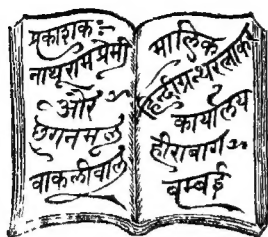 प्रकाशक:-
नाथूराम प्रेमी
और
छगनमल
वाकलीवाल
मालिक
हिन्दीग्रन्थरत्नाकर
कार्यालय
हीराबाग
बम्बई